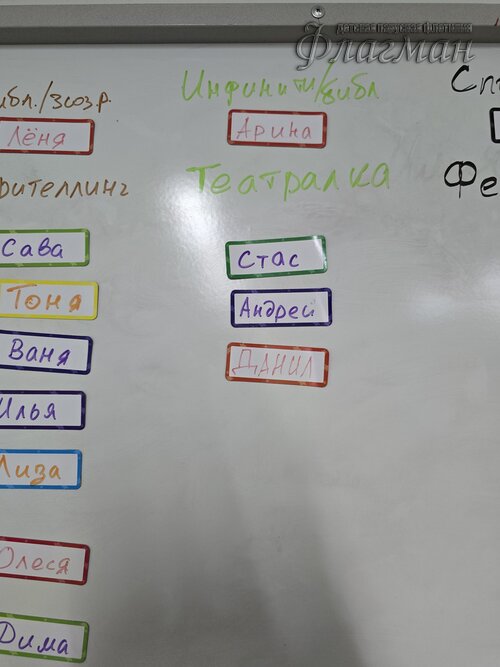 детская досуговая флотилия
Флагман
Инфинити/библ
Арина
Театралка
Стас
Андрей
ДАНИЛ
ибл./зозр.
Лёня
рителлинг
Сава
Тоня
Ваня
Илья
Лиза
Олеся
Дима
Сп
Фе